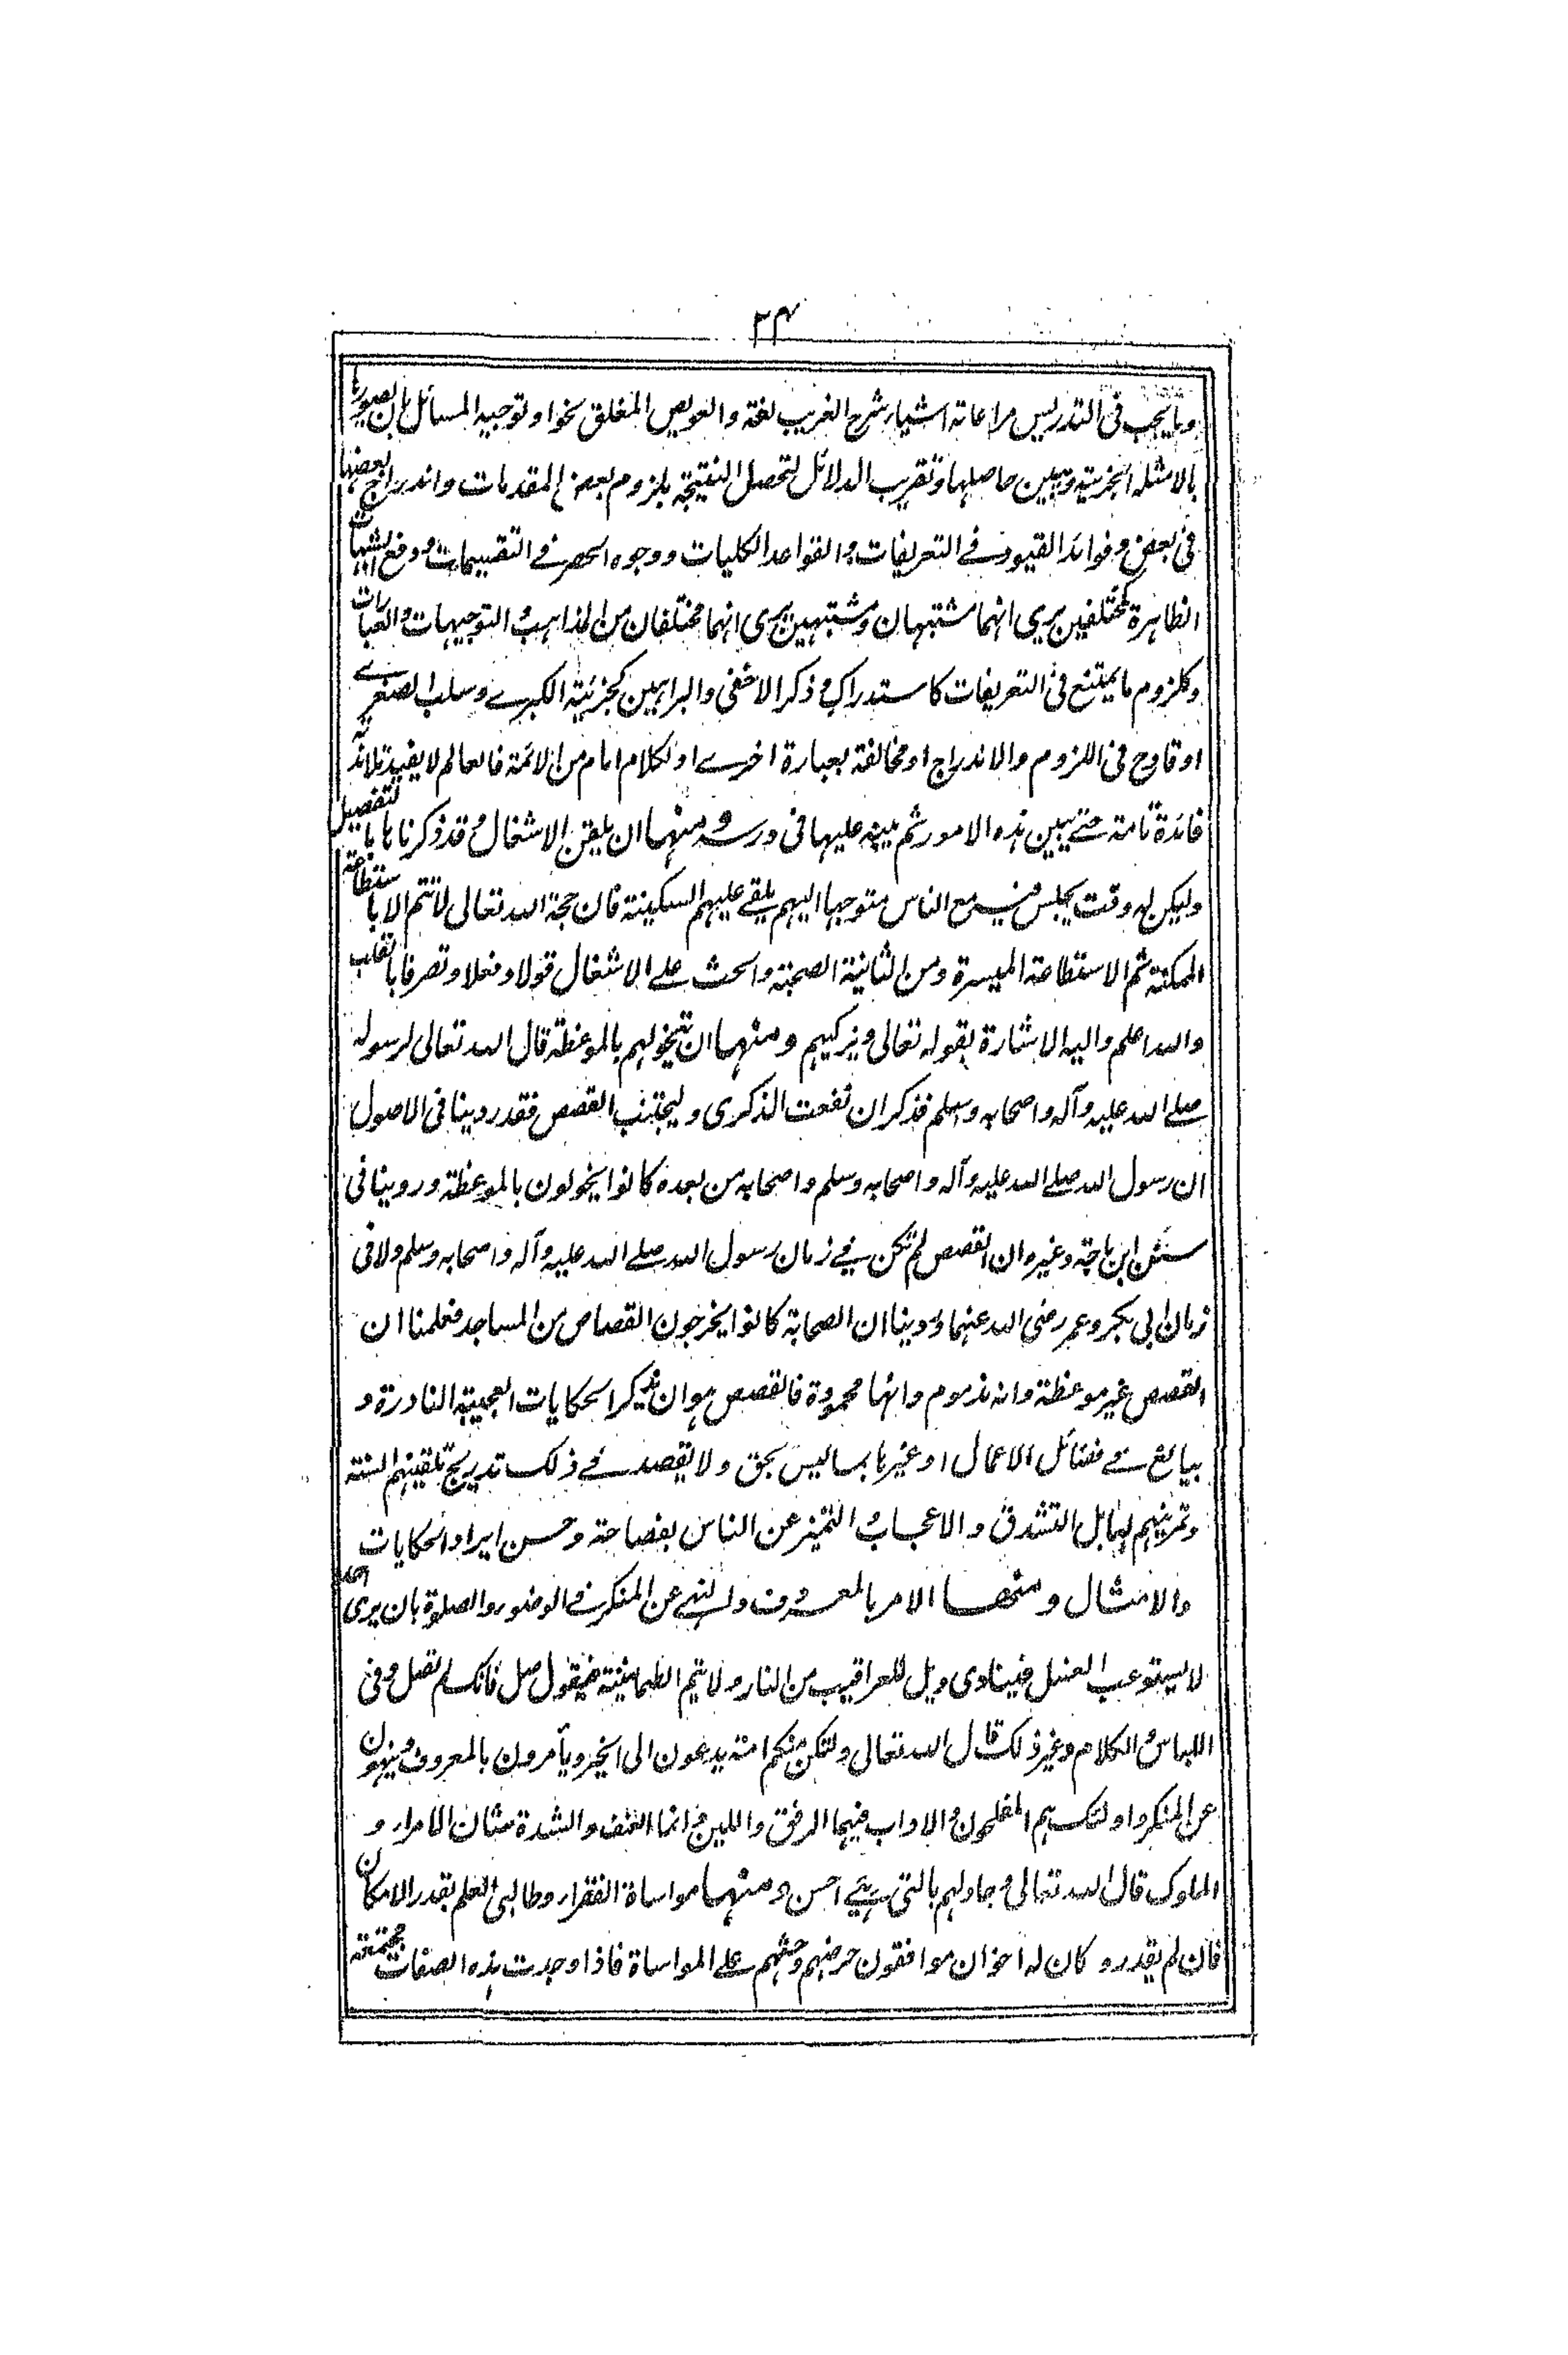 ٢٤
وما يجب فى التدريس مراعاته اشياء شرح الغريب لغة والعويص المغلق نحوا وتوجيه المسائل بان يصورها
بالامثلة الجزئية ويبين حاصلها وتقريب الدلائل لتحصل النتيجة بلزوم بعض المقدمات واندراج بعضها
فى بعض وفوائد القيود فے التعريفات والقواعد الكليات ووجوه الحصر فے التقسيمات ودفع الشبهات
الظاهرة كمختلفين يرى انهما مشتبهان ومشتبهين يرى انهما مختلفان من المذاهب والتوجيهات والعبارات
وكلزوم ما يمتنع فى التعريفات كاستدراك وذكر الاخفى والبراهين كجزئية الكبرے وسلب الصغرے
او قادح فى اللزوم والاندراج او مخالفة بعبارة اخرے او لكلام امام من الائمة فالعالم لا يفيد تلامذته
فائدة تامة حتے يبين هذه الامور ثم ينبه عليها فى درسه ومنها ان يلقن الاشغال وقد ذكرناها بالتفصيل
وليكن له وقت يجلس فيه مع الناس متوجها اليهم يلقے عليهم السكينة فان حجة الله تعالى لا تتم الا باستطاعة
الممكنة ثم الاستطاعة الميسرة ومن الثانية الصحبة والحث علے الاشغال قولا وفعلا وتصرفا بالقلب
والله اعلم واليه الاشارة بقوله تعالى ويزكيهم ومنها ان يتخولهم بالموعظة قال الله تعالى لرسوله
صلے الله عليه وآله واصحابه وسلم فذكر ان نفعت الذكرى وليجتنب القصص فقد روينا فى الاصول
ان رسول الله صلے الله عليه وآله واصحابه وسلم واصحابه من بعده كانوا يخولون بالموعظة وروينا فى
سنن ابن ماجة وغيره ان القصص لم تكن فے زمان رسول الله صلے الله عليه وآله واصحابه وسلم ولا فى
زمان ابى بكر وعمر رضى الله عنهما وروينا ان الصحابة كانوا يخرجون القصاص من المساجد فعلمنا ان
القصص غير موعظة وانه مذموم وانها محمودة فالقصص هو ان يذكر الحكايات العجيبة النادرة و
يبالغ فے فضائل الاعمال او غيرها بما ليس بحق ولا يقصد فے ذلك تدريج تلقينهم السنة
وتمرينهم بها بل التشدق والاعجاب والتميز عن الناس بفصاحة وحسن ايراد الحكايات
والامثال ومنها الامر بالمعروف والنهے عن المنكر فے الوضوء والصلوة بان يرى احدا
لا يستوعب الغسل فينادى ويل للعراقيب من النار ولا يتم الطمانينة فيقول صل فانك لم تصل وفى
اللباس والكلام وغير ذلك قال الله تعالى ولتكن منكم امة يدعون الى الخير ويأمرون بالمعروف وينهون
عن المنكر واولئك هم المفلحون والاداب فيها الرفق واللين وانما العنف والشدة شان الامراء و
الملوك قال الله تعالى وجادلهم بالتى هے احسن ومنها مواساة الفقراء وطالبى العلم بقدر الامكان
فان لم يقدر و كان له اخوان موافقون حرضهم وحثهم علے المواساة فاذا وجدت هذه الصفات مجتمعة